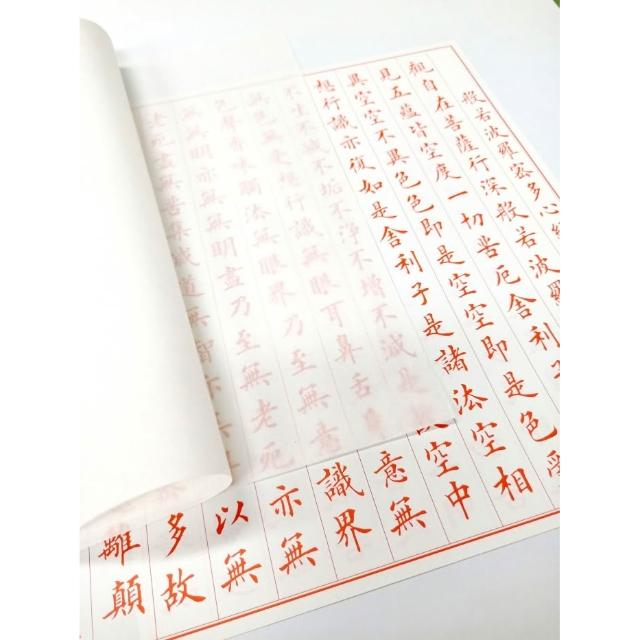 般若波羅蜜多心
觀自在菩薩行深般若波羅
見五蘊皆空度一切苦厄舍利子
異空空不異色色即是空空即是色受
想行識亦復如是舍利子是諸法空相
不生不滅不垢不淨不增不減是故空中
無色無受想行識無眼耳鼻舌身意無
色聲香味觸法無眼界乃至無意識界
無無明亦無無明盡乃至無老死亦無
老死盡無苦集滅道無智亦無以無
多故
離顛